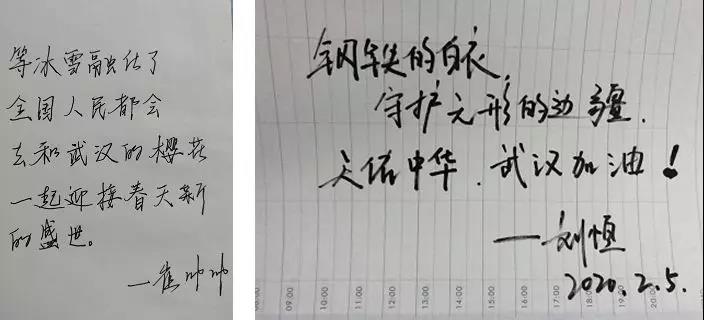 等冰雪融化了
全国人民都会
去和武汉的樱花
一起迎接春天新
的盛世。
—崔帅帅
钢铁的白衣，
守护无形的边疆．
天佑中华．武汉加油！
——刘恒
2020.2.5.
09:00
10:00
11:00
12:00
13:00
14:00
15:00
16:00
17:00
18:00
19:00
20:00